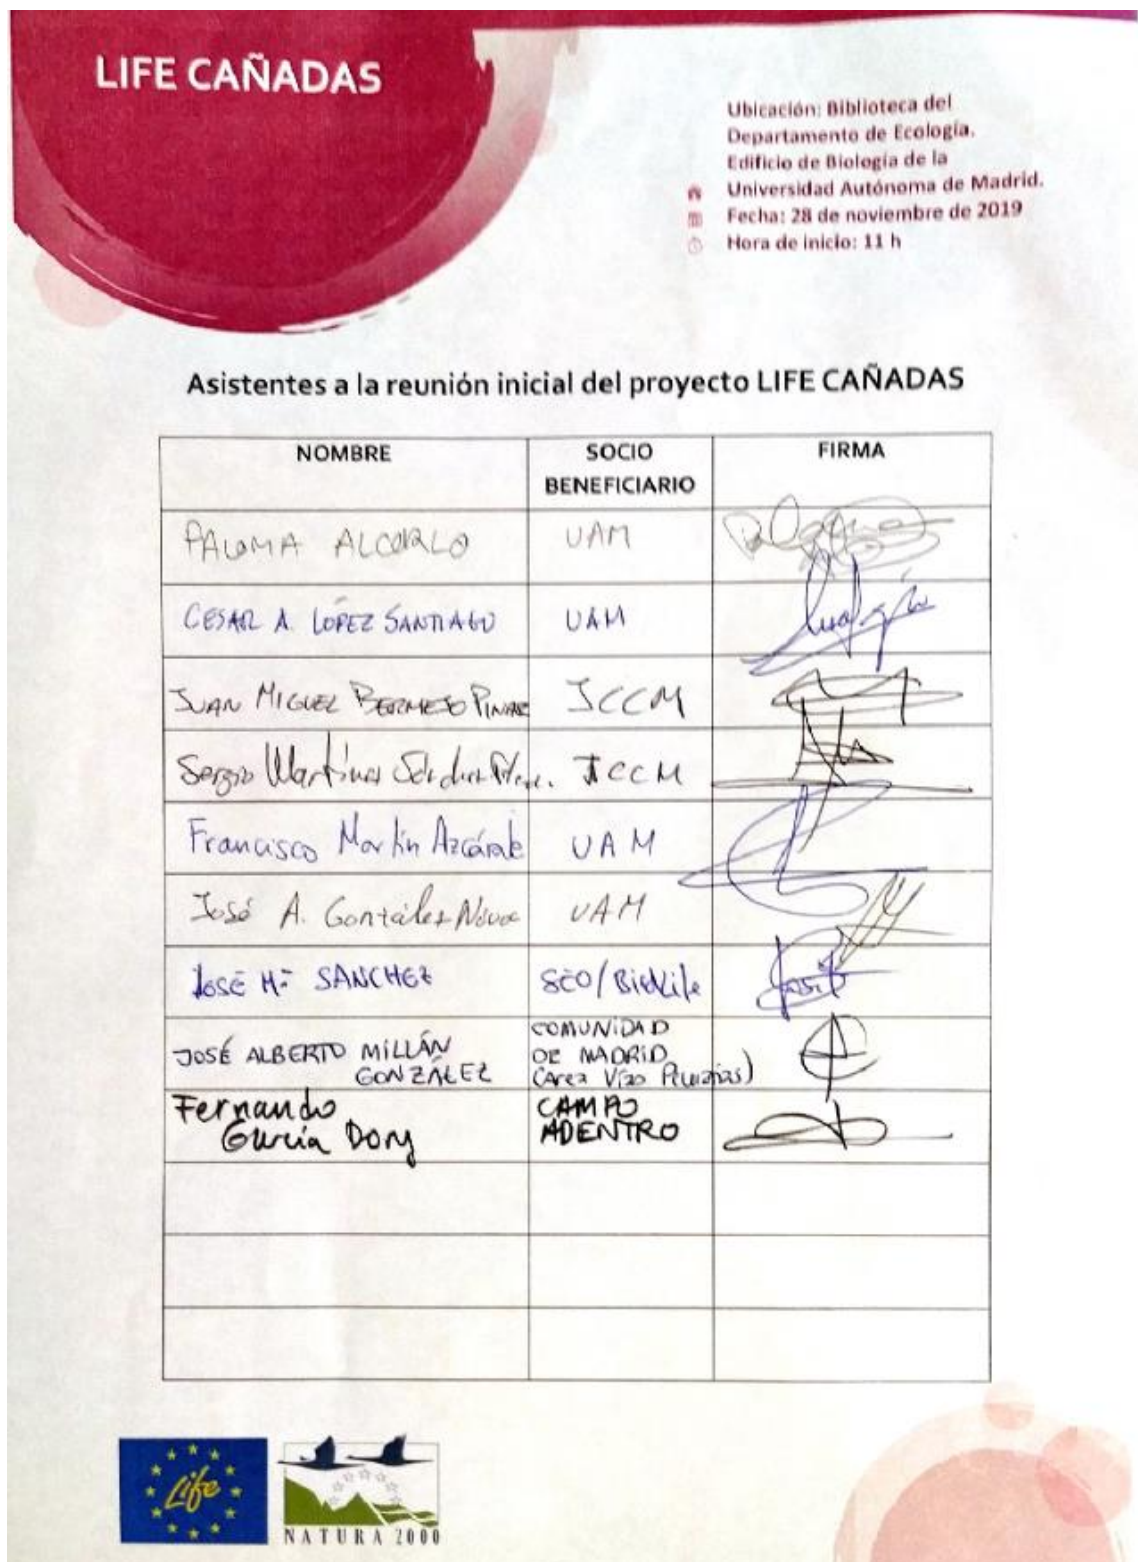 LIFE CAÑADAS
Ubicación: Biblioteca del
Departamento de Ecología.
Edificio de Biología de la
Universidad Autónoma de Madrid.
Fecha: 28 de noviembre de 2019
Hora de inicio: 11 h
Asistentes a la reunión inicial del proyecto LIFE CAÑADAS
NOMBRE SOCIO BENEFICIARIO FIRMA
PALOMA ALCORLO UAM
CESAR A. LÓPEZ SANTIAGO UAM
JUAN MIGUEL BERMEJO JCCM
Sergio Martínez JCCM
Francisco Martín Azcárate UAM
José A. González Nóvoa UAM
JOSÉ Mª SANCHEZ SEO/BirdLife
JOSÉ ALBERTO MILLÁN
GONZÁLEZ
COMUNIDAD
DE MADRID
(Area Vías Pecuarias)
Fernando
García Dory
CAMPO
ADENTRO
Life
NATURA 2000